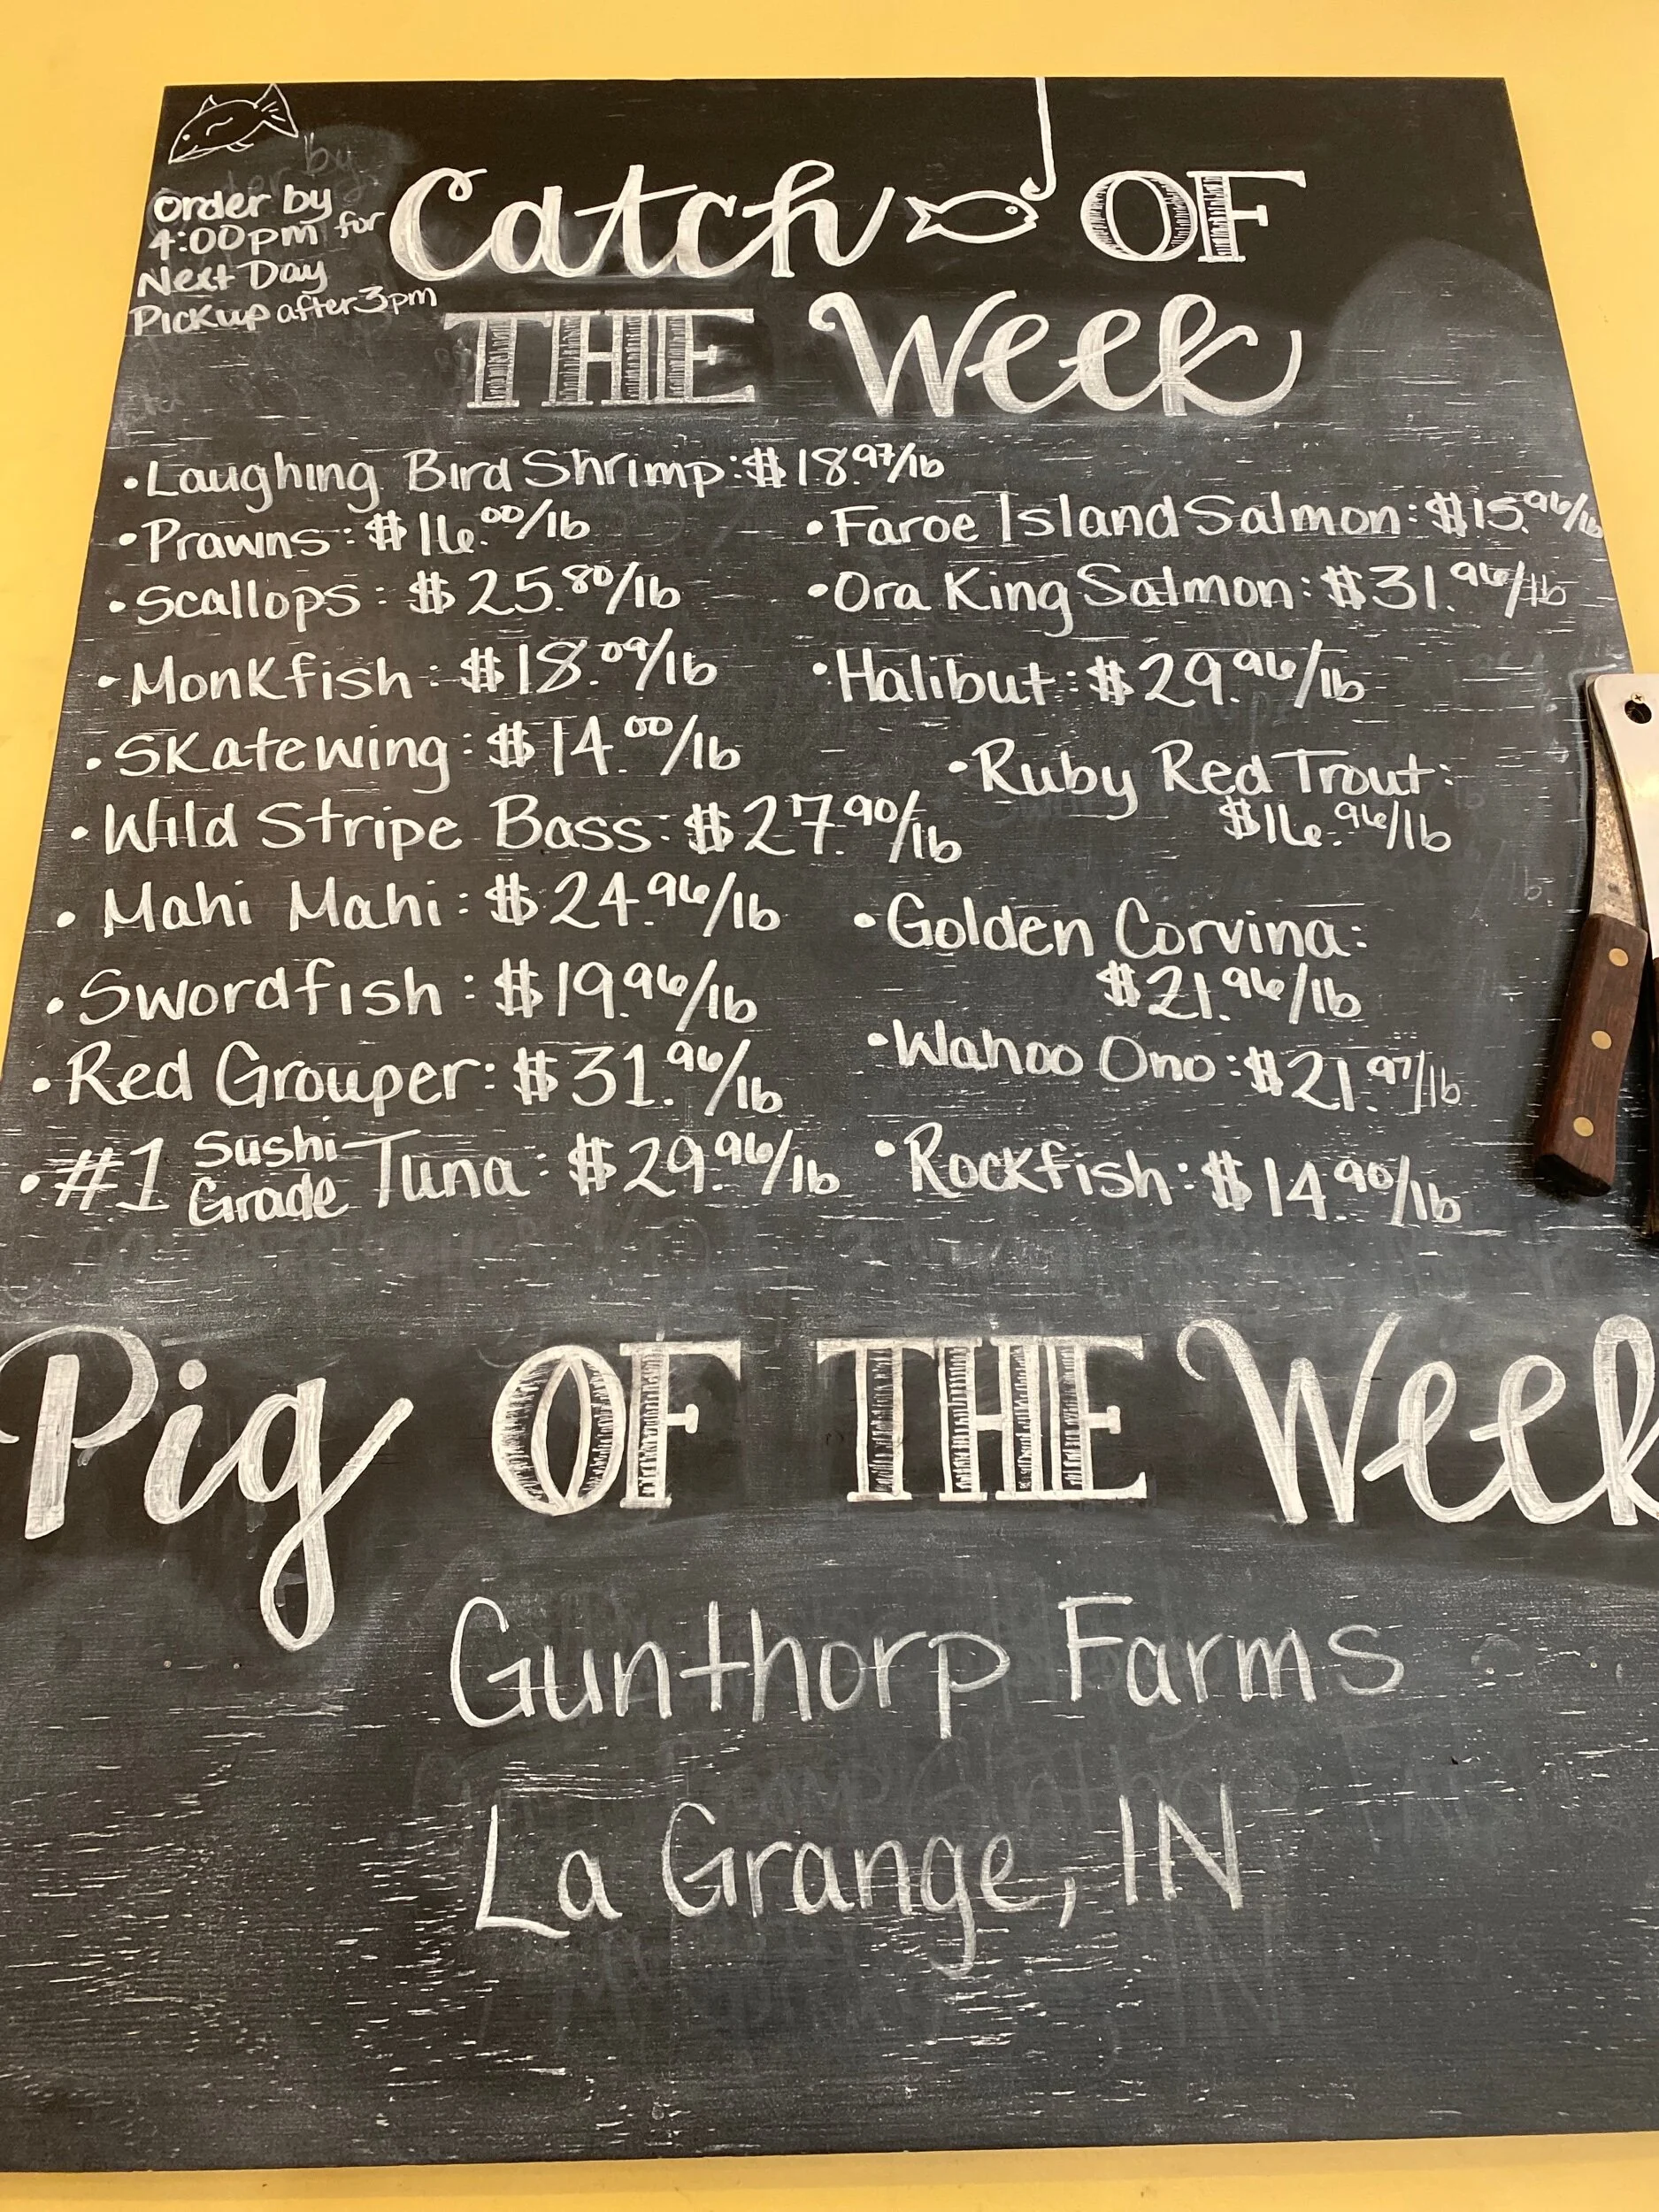 Order by
4:00pm for
Next Day
Pickup after 3pm
Catch OF
THE Week
• Laughing Bird Shrimp: $18.97/lb
• Prawns: $16.00/lb
• Scallops: $25.80/lb
• Monkfish: $18.09/lb
• Skatewing: $14.00/lb
• Wild Stripe Bass: $27.90/lb
• Mahi Mahi: $24.96/lb
• Swordfish: $19.96/lb
• Red Grouper: $31.96/lb
• #1 Sushi Grade Tuna: $29.96/lb
• Faroe Island Salmon: $15.96/lb
• Ora King Salmon: $31.96/lb
• Halibut: $29.96/lb
• Ruby Red Trout:
$16.96/lb
• Golden Corvina:
$21.96/lb
• Wahoo Ono: $21.97/lb
• Rockfish: $14.90/lb
Pig OF THE Week
Gunthorp Farms
La Grange, IN